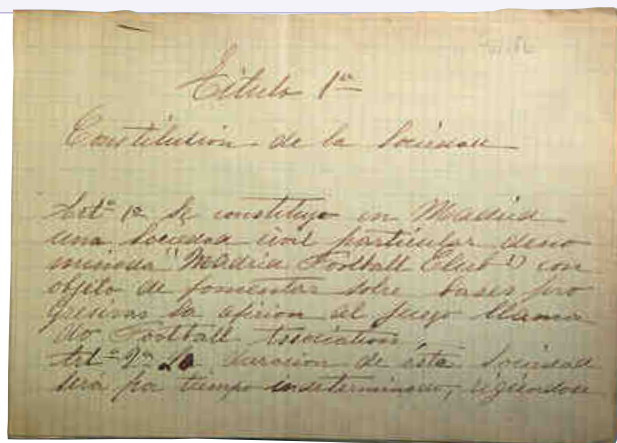 Título 1º
Constitución de la Sociedad
Artº 1º Se constituye en Madrid
una Sociedad civil particular deno
minada "Madrid Football Club" con
objeto de fomentar sobre bases pro
gresivas la aficion al juego llama
do Football Association.
Artº 2º La duracion de esta Sociedad
sera por tiempo indeterminado, rigiendose